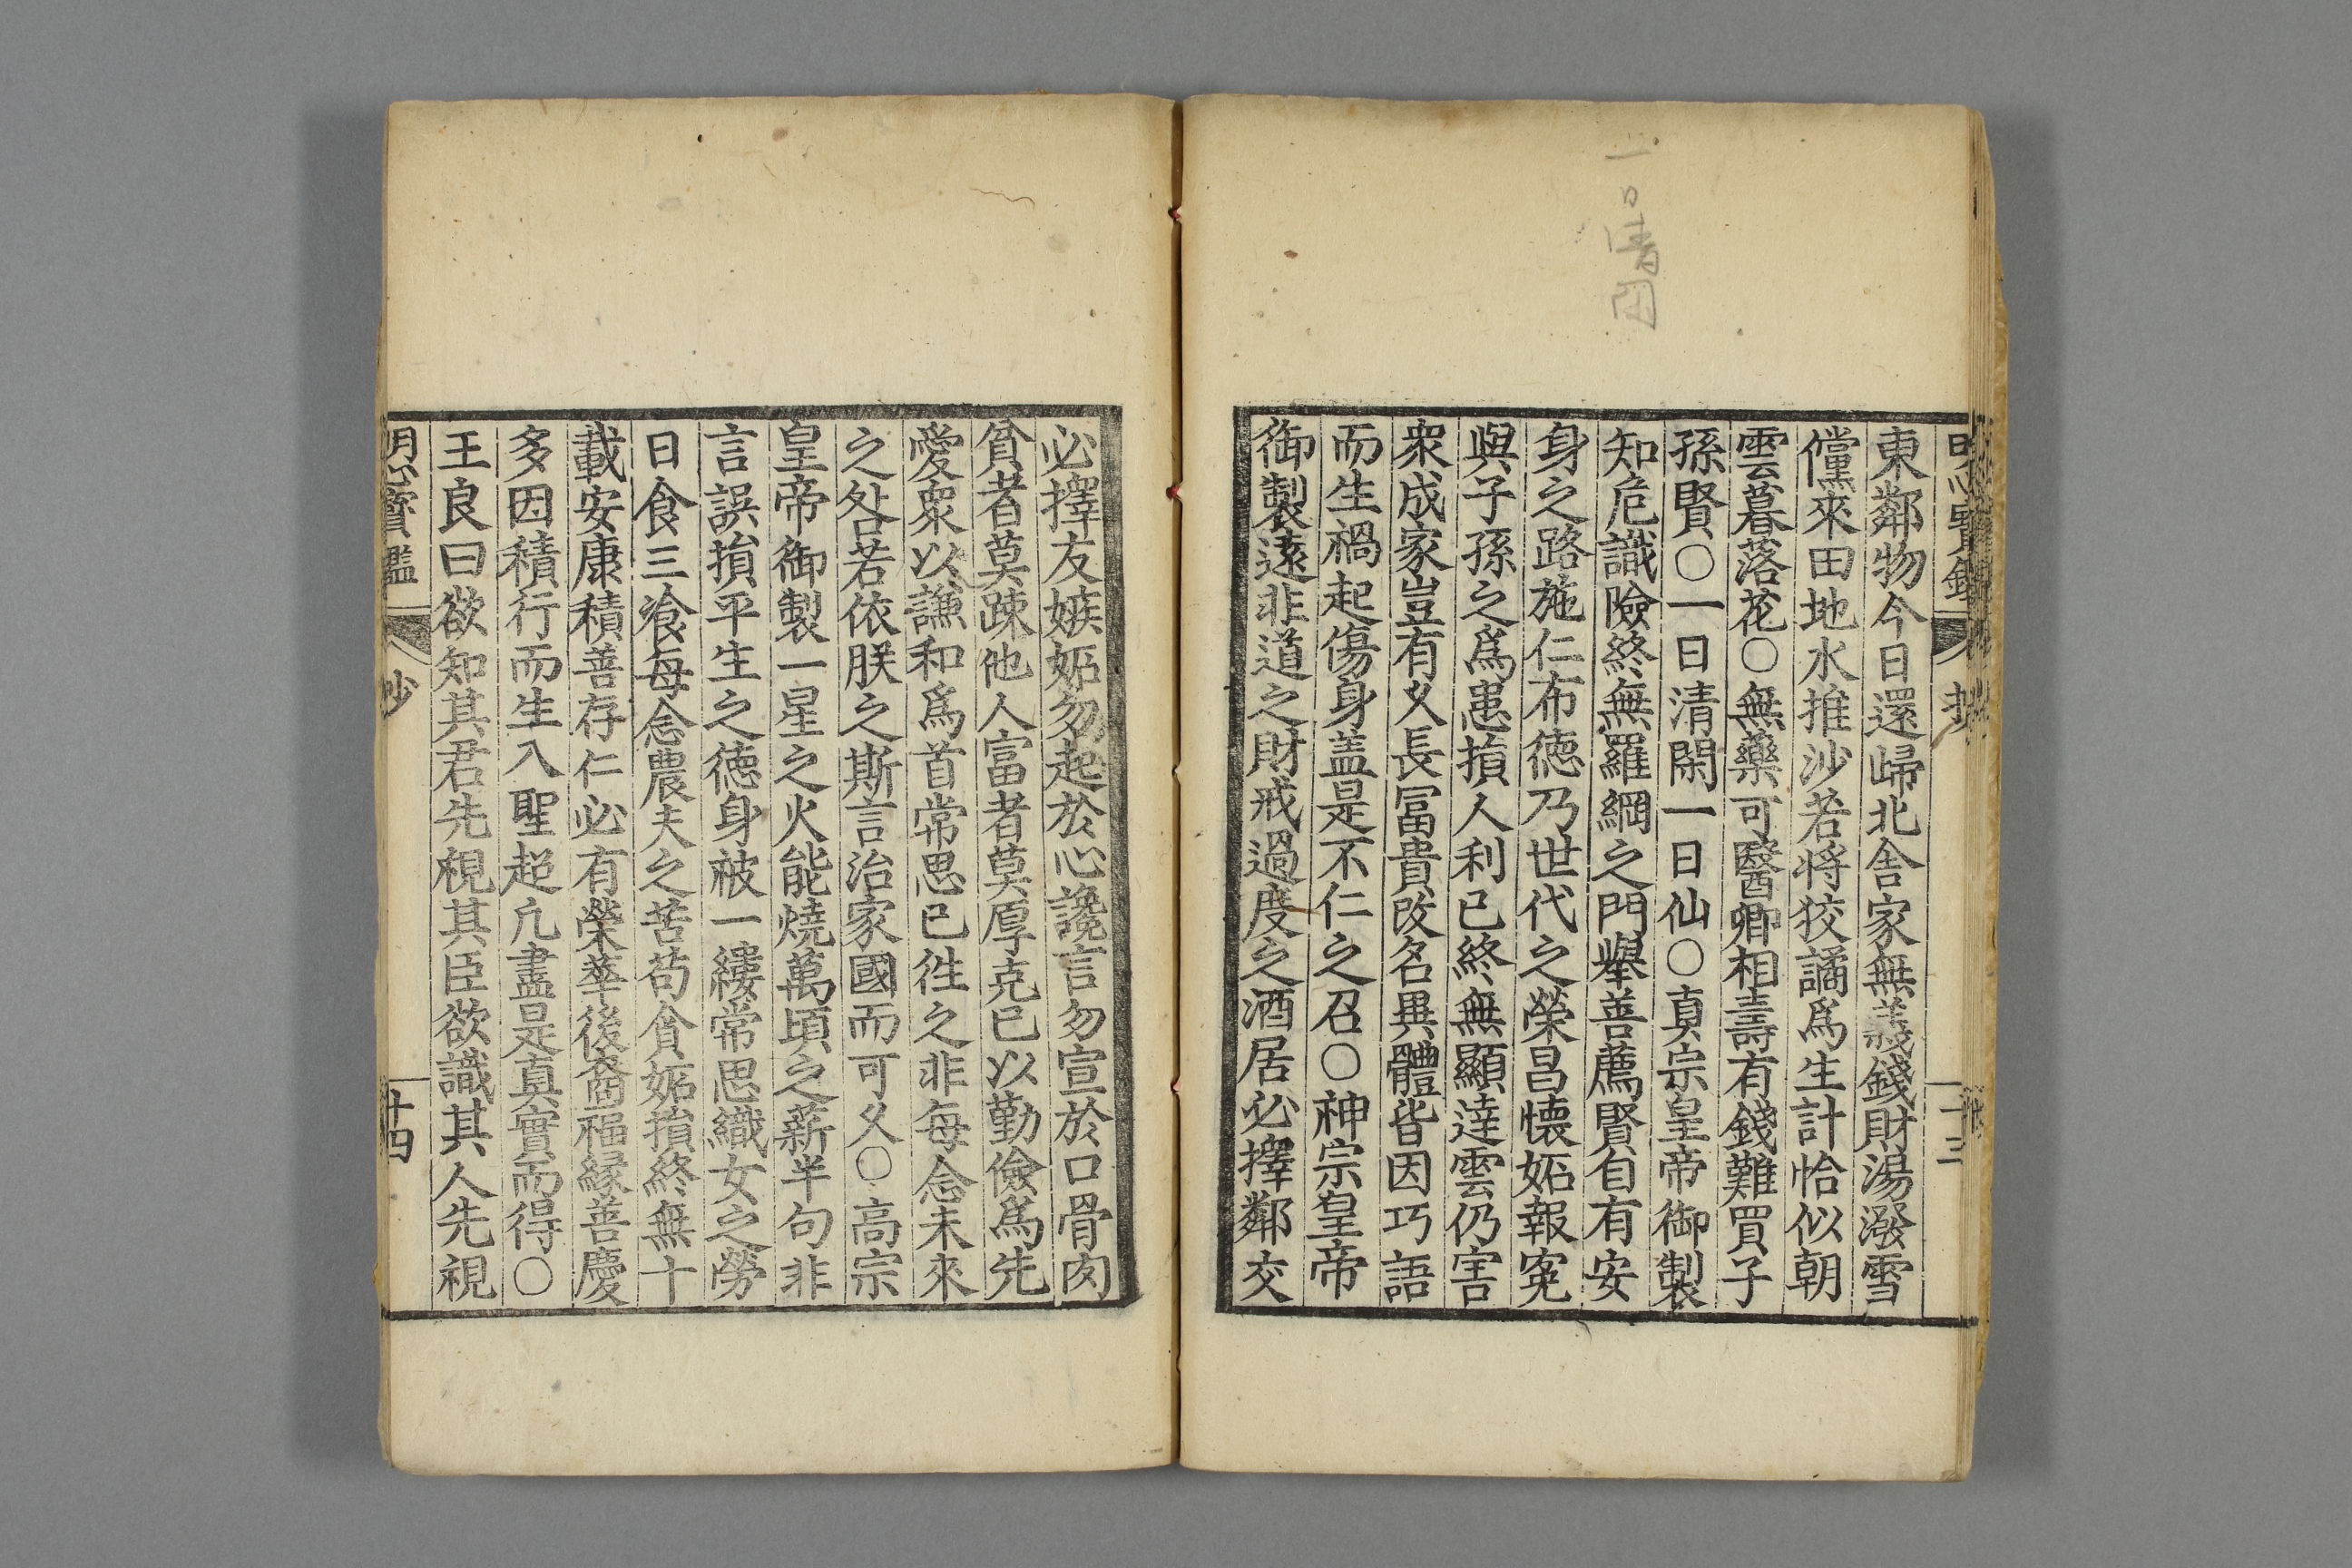 一日清閑
明心寶鑑 抄 十三
東鄰物今日還歸北舎家無義錢財湯潑雪
儻來田地水推沙若將狡譎爲生計恰似朝
雲暮落花〇無藥可醫卿相壽有錢難買子
孫賢〇一日清閑一日仙〇真宗皇帝御製
知危識險終無羅網之門舉善薦賢自有安
身之路施仁布徳乃世代之榮昌懐妬報寃
與子孫之爲患損人利己終無顯達雲仍害
衆成家豈有久長冨貴改名異體皆因巧語
而生禍起傷身盖是不仁之召〇神宗皇帝
御製遠非道之財戒過度之酒居必擇鄰交
必擇友嫉妬勿起於心讒言勿宣於口骨肉
貧者莫踈他人富者莫厚克己以勤儉爲先
愛衆以謙和爲首常思已徃之非每念未來
之咎若依朕之斯言治家國而可久〇高宗
皇帝御製一星之火能燒萬頃之薪半句非
言誤損平生之徳身被一縷常思織女之勞
日食三飡每念農夫之苦苟貪妬損終無十
載安康積善存仁必有榮華後裔福縁善慶
多因積行而生入聖超凡盡是真實而得〇
王良曰欲知其君先視其臣欲識其人先視
明心寶鑑 抄 十四